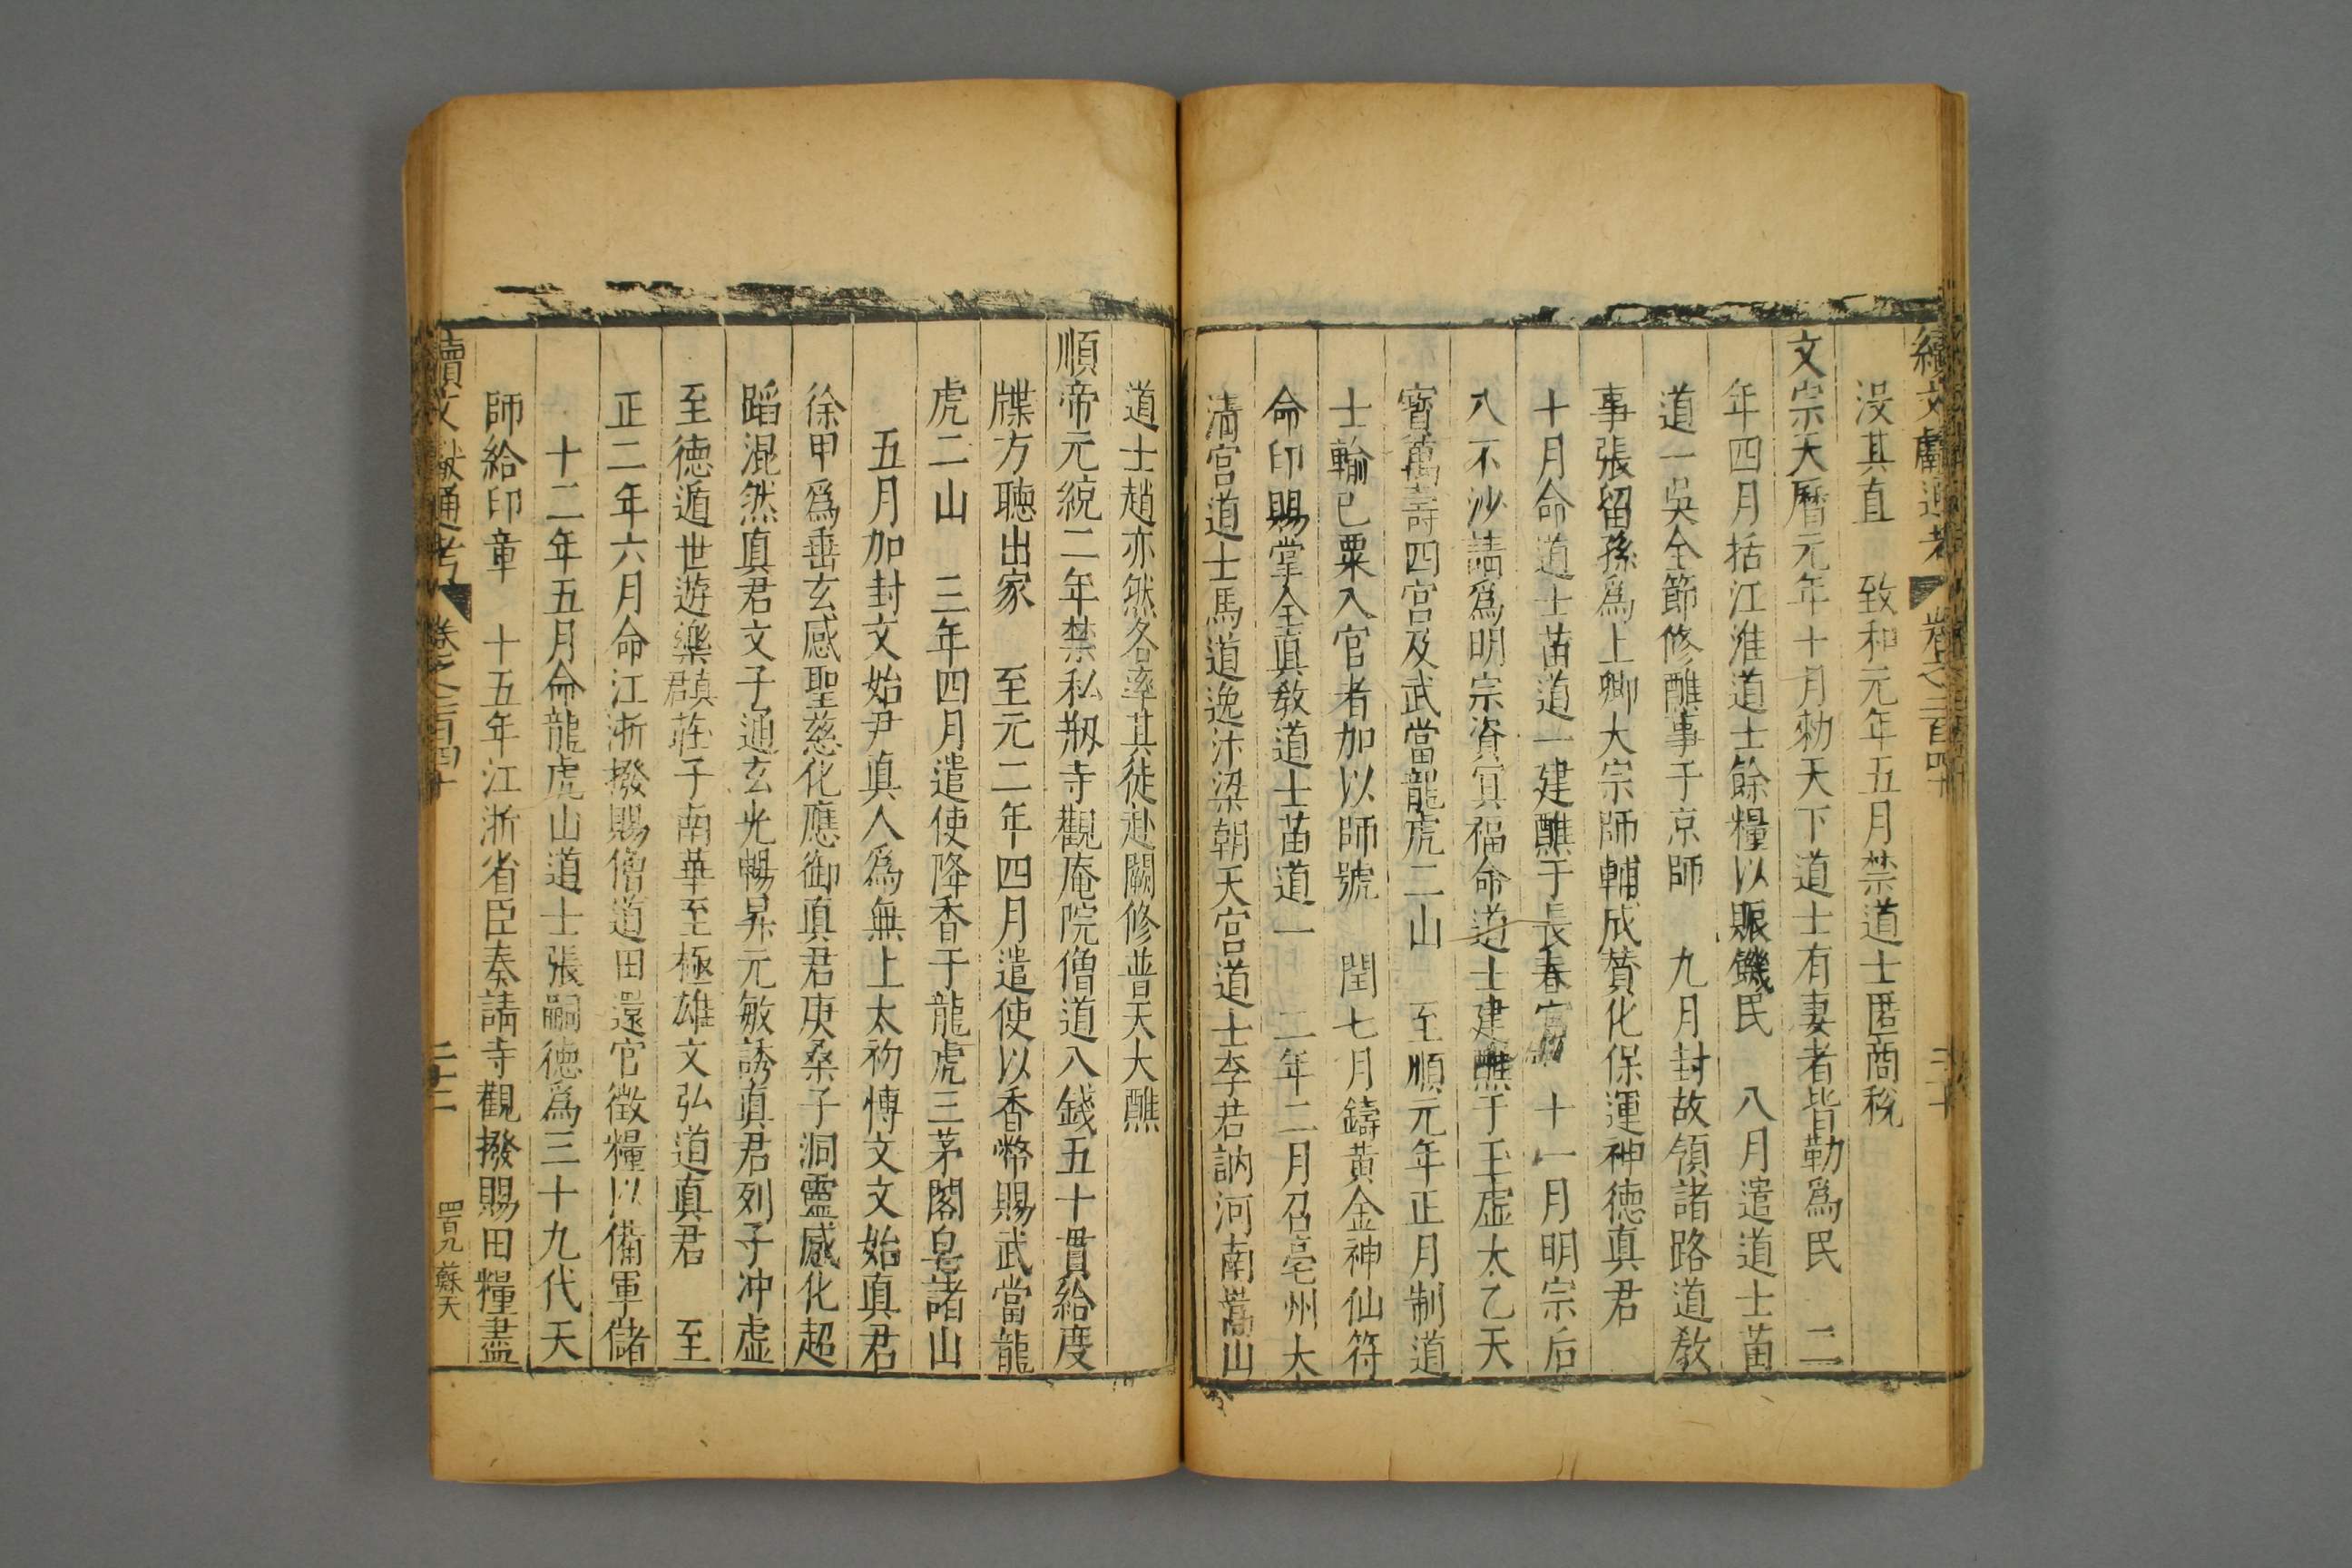 續文獻通考 卷之二百四十
沒其直 致和元年五月禁道士匿商稅
文宗天曆元年十月勑天下道士有妻者皆勒爲民 二
年四月括江淮道士餘糧以賑饑民 八月遣道士苗
道一吳全節修醮事于京師 九月封故領諸路道敎
事張留孫爲上卿大宗師輔成贊化保運神德真君
十月命道士苗道一建醮于長春宮 十一月明宗后
八不沙請爲明宗資冥福命道士建醮于玉虛太乙天
寶萬壽四宮及武當龍虎二山 至順元年正月制道
士輸己粟入官者加以師號 閏七月鑄黃金神仙符
命印賜掌全真敎道士苗道一 二年二月召亳州太
清宮道士馬道逸汴梁朝天宮道士李若訥河南嵩山
道士趙亦然各率其徒赴闕修普天大醮
順帝元統二年禁私剏寺觀庵院僧道入錢五十貫給度
牒方聽出家 至元二年四月遣使以香幣賜武當龍
虎二山 三年四月遣使降香于龍虎三茅閣皂諸山
五月加封文始尹真人爲無上太初博文文始真君
徐甲爲垂玄感聖慈化應御真君庚桑子洞靈感化超
蹈混然真君文子通玄光暢昇元敏誘真君列子冲虛
至德遁世遊樂真君莊子南華至極雄文弘道真君 至
正二年六月命江浙撥賜僧道田還官徵糧以備軍儲
十二年五月命龍虎山道士張嗣德爲三十九代天
師給印章 十五年江浙省臣奏請寺觀撥賜田糧盡
續文獻通考 卷之二百四十 二十二 四百九 蘇天